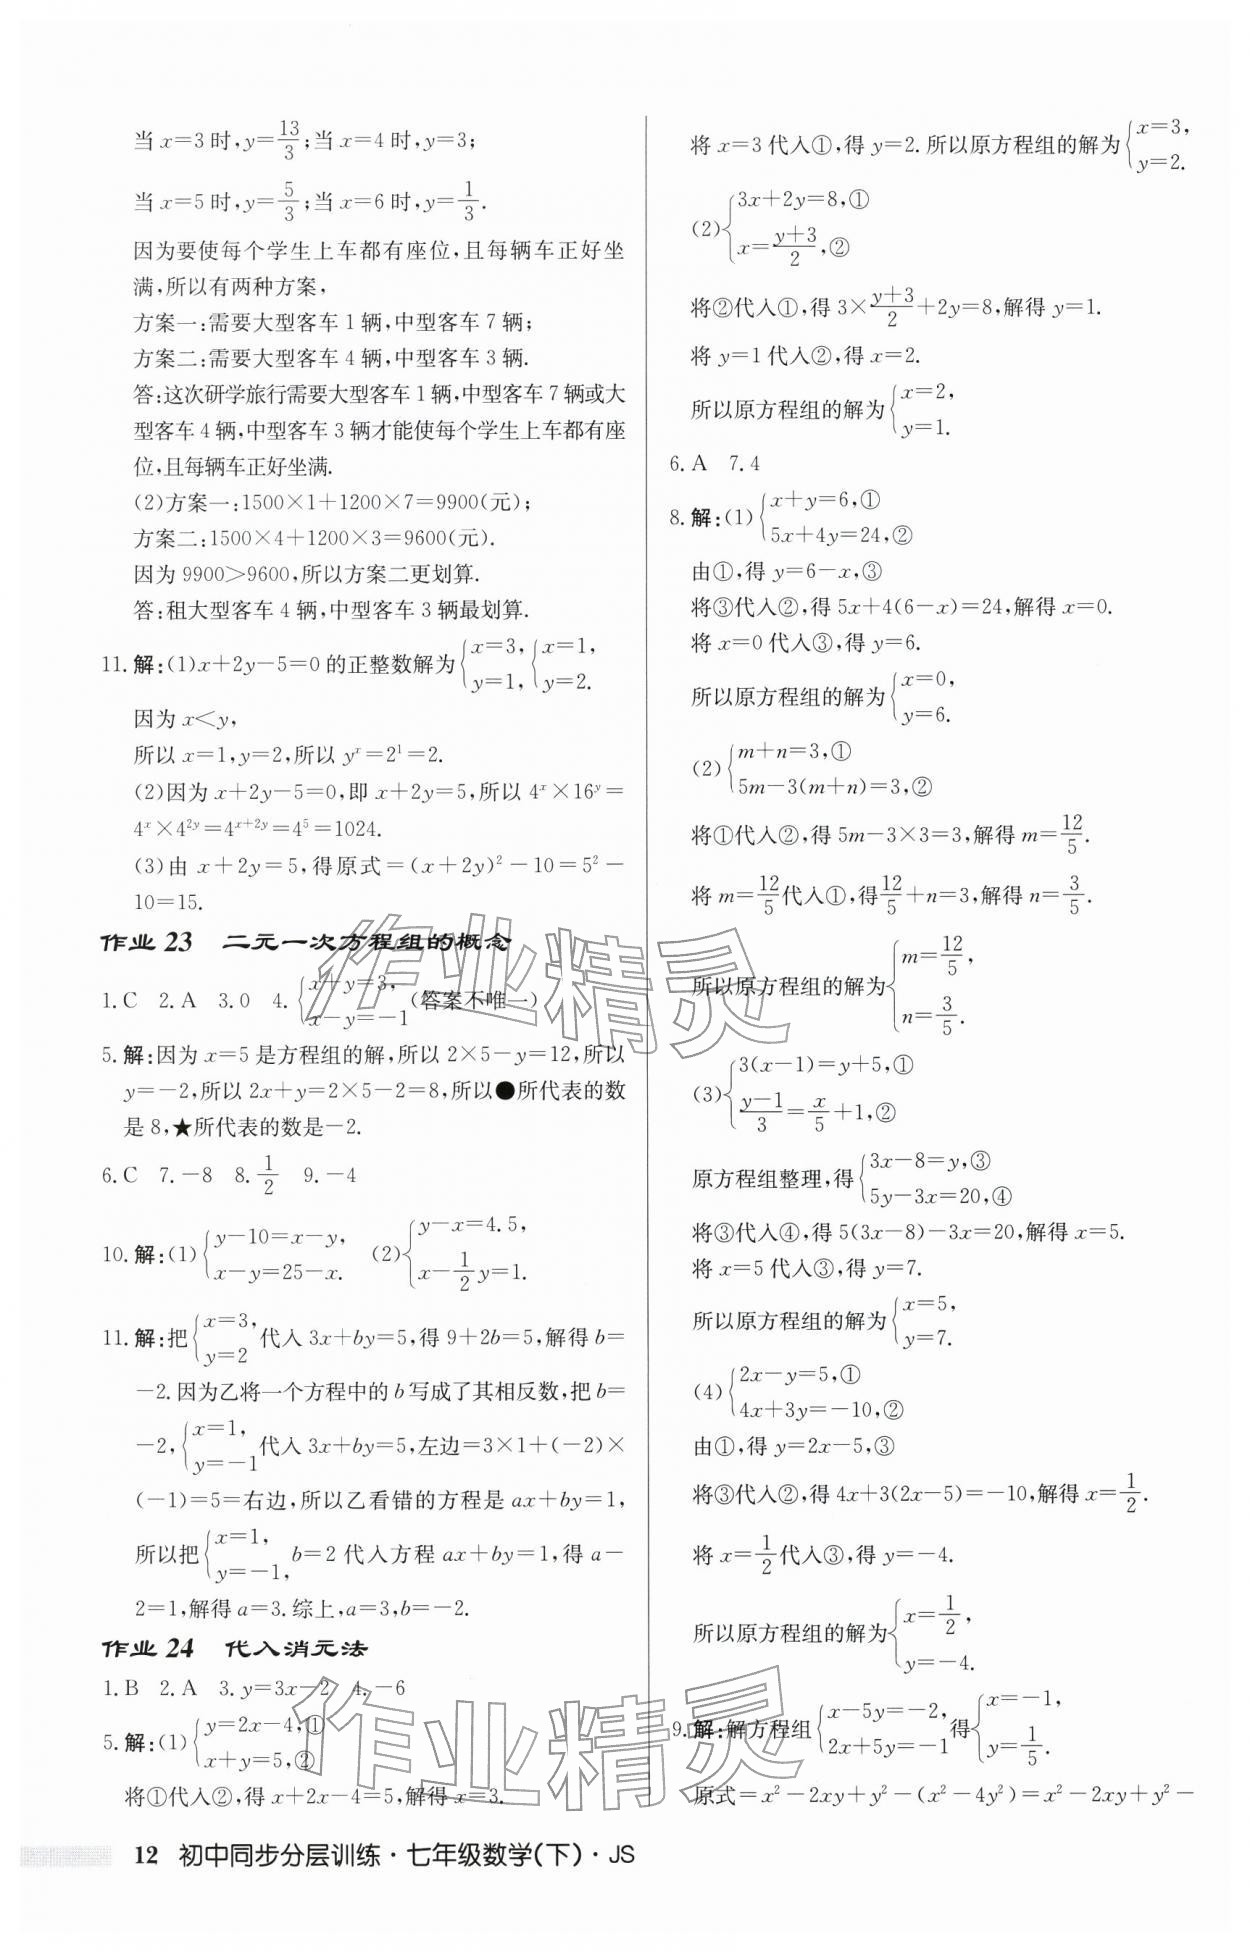 当 x=3 时,y=13/3;当 x=4 时,y=3;
当 x=5 时,y=5/3;当 x=6 时,y=1/3.
因为要使每个学生上车都有座位,且每辆车正好坐
满,所以有两种方案,
方案一:需要大型客车 1 辆,中型客车 7 辆;
方案二:需要大型客车 4 辆,中型客车 3 辆.
答:这次研学旅行需要大型客车 1 辆,中型客车 7 辆或大
型客车 4 辆,中型客车 3 辆才能使每个学生上车都有座
位,且每辆车正好坐满.
(2)方案一:1500×1+1200×7=9900(元);
方案二:1500×4+1200×3=9600(元).
因为 9900>9600,所以方案二更划算.
答:租大型客车 4 辆,中型客车 3 辆最划算.
11. 解:(1)x+2y-5=0 的正整数解为{x=3, y=1, {x=1, y=2.
因为 x<y,
所以 x=1,y=2,所以 y^x=2^1=2.
(2)因为 x+2y-5=0,即 x+2y=5,所以 4^x×16^y=
4^x×4^{2y}=4^{x+2y}=4^5=1024.
(3)由 x+2y=5,得原式=(x+2y)²-10=5²-
10=15.
作业 23 二元一次方程组的概念
1. C 2. A 3. 0 4. {x+y=3, x-y=-1 (答案不唯一)
5. 解:因为 x=5 是方程组的解,所以 2×5-y=12,所以
y=-2,所以 2x+y=2×5-2=8,所以●所代表的数
是 8,★所代表的数是-2.
6. C 7. -8 8. 1/2 9. -4
10. 解:(1){y-10=x-y, x-y=25-x. (2){y-x=4.5, x-1/2y=1.
11. 解:把{x=3, y=2 代入 3x+by=5,得 9+2b=5,解得 b=
-2. 因为乙将一个方程中的 b 写成了其相反数,把 b=
-2,{x=1, y=-1 代入 3x+by=5,左边=3×1+(-2)×
(-1)=5=右边,所以乙看错的方程是 ax+by=1,
所以把{x=1, y=-1, b=2 代入方程 ax+by=1,得 a-
2=1,解得 a=3. 综上,a=3,b=-2.
作业 24 代入消元法
1. B 2. A 3. y=3x-2 4. -6
5. 解:(1){y=2x-4,① x+y=5,②
将①代入②,得 x+2x-4=5,解得 x=3.
将 x=3 代入①,得 y=2. 所以原方程组的解为{x=3, y=2.
(2){3x+2y=8,① x=(y+3)/2,②
将②代入①,得 3×(y+3)/2+2y=8,解得 y=1.
将 y=1 代入②,得 x=2.
所以原方程组的解为{x=2, y=1.
6. A 7. 4
8. 解:(1){x+y=6,① 5x+4y=24,②
由①,得 y=6-x,③
将③代入②,得 5x+4(6-x)=24,解得 x=0.
将 x=0 代入③,得 y=6.
所以原方程组的解为{x=0, y=6.
(2){m+n=3,① 5m-3(m+n)=3,②
将①代入②,得 5m-3×3=3,解得 m=12/5.
将 m=12/5代入①,得12/5+n=3,解得 n=3/5.
所以原方程组的解为{m=12/5, n=3/5.
(3){3(x-1)=y+5,① (y-1)/3=x/5+1,②
原方程组整理,得{3x-8=y,③ 5y-3x=20,④
将③代入④,得 5(3x-8)-3x=20,解得 x=5.
将 x=5 代入③,得 y=7.
所以原方程组的解为{x=5, y=7.
(4){2x-y=5,① 4x+3y=-10,②
由①,得 y=2x-5,③
将③代入②,得 4x+3(2x-5)=-10,解得 x=1/2.
将 x=1/2代入③,得 y=-4.
所以原方程组的解为{x=1/2, y=-4.
9. 解:解方程组{x-5y=-2, 2x+5y=-1 得{x=-1, y=1/5.
原式=x²-2xy+y²-(x²-4y²)=x²-2xy+y²-
12 初中同步分层训练·七年级数学(下)·JS
作业精灵
作业精灵